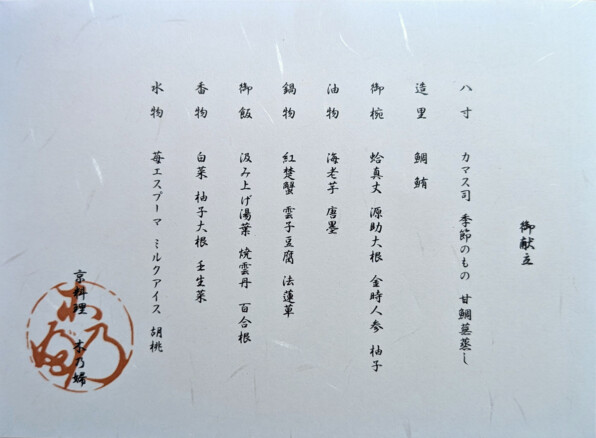 御献立
八寸 カマス司 季節のもの 甘鯛蕪蒸し
造里 鯛 鮪
御椀 蛤真丈 源助大根 金時人参 柚子
油物 海老芋 唐墨
鍋物 紅楚蟹 雲子豆腐 法蓮草
御飯 汲み上げ湯葉 焼雲丹 百合根
香物 白菜 柚子大根 壬生菜
水物 苺エスプーマ ミルクアイス 胡桃
京料理 木乃婦